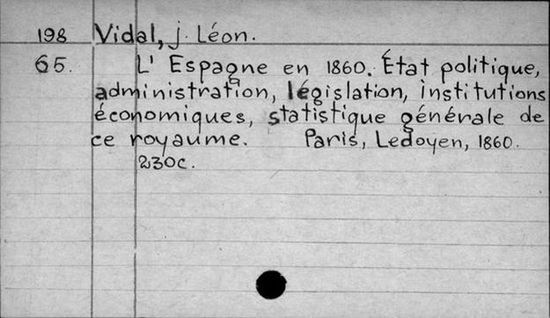 198 Vidal, j. Léon.
65. L' Espagne en 1860. État politique,
administration, législation, institutions
économiques, statistique générale de
ce royaume. Paris, Ledoyen, 1860.
230c.